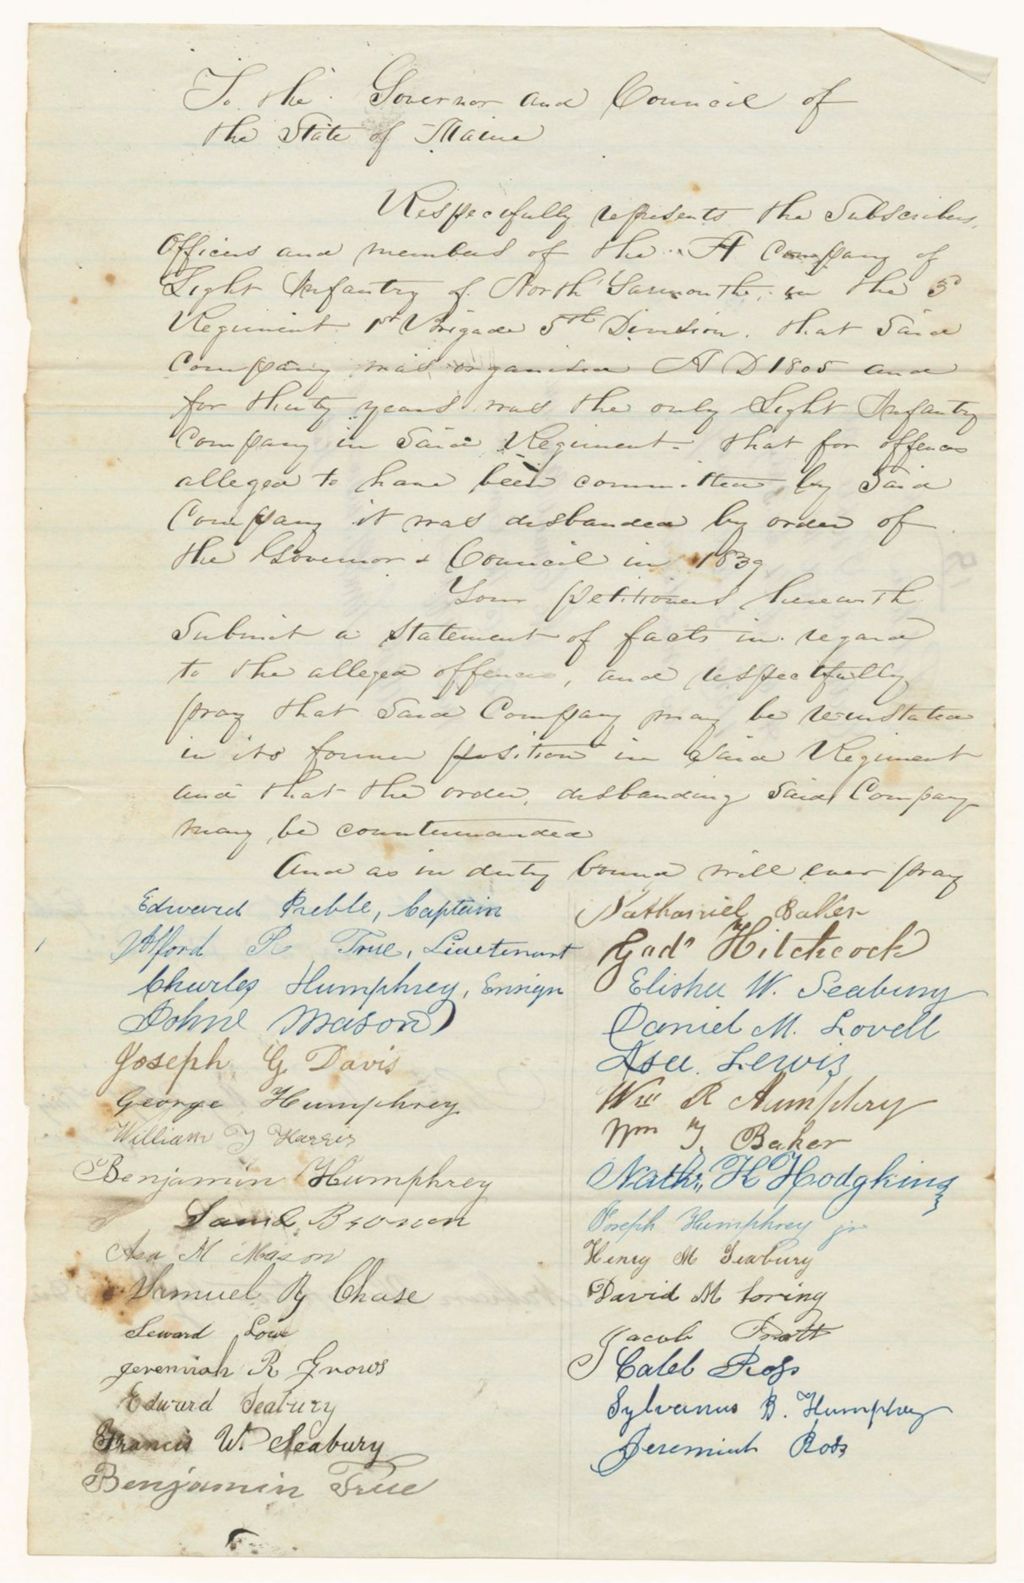 To the Governor and Council of
the State of Maine
Respectfully represents the Subscribers,
Officers and members of the A Company of
Light Infantry of North Yarmouth, in the 3
Regiment 1st Brigade 5th Division. that Said
Company was organised A D 1805 and
for thirty years was the only Light Infantry
Company in Said Regiment - that for offences
alleged to have been committed by Said
Company it was disbanded by order of
the Governor & Council in 1839
Your petitioners herewith
Submit a Statement of facts in regard
to the alleged offences, and respectfully
pray that Said Company may be reinstated
in its former position in Said Regiment
and that the order, disbanding Said Company
may be countermanded
And as in duty bound will ever pray
Edward Preble, Captain
R True, Lieutenant
Charles Humphrey, Ensign
John Mason
Joseph G Davis
George Humphrey
William Harris
Benjamin Humphrey
Saml Brown
Asa M Mason
Samuel R Chase
Seward Low
Jeremiah R Grows
Edward Seabury
Francis W. Seabury
Benjamin True
Nathaniel Baker
Hitchcock
Elisha W. Seabury
Daniel M. Lovell
Asa Lewis
Wm R Humphrey
Wm Baker
Nathl H Hodgkins
Joseph Humphrey jr
Henry M Seabury
David M Loring
Jacob Pratt
Caleb Ross
Sylvanus B. Humphrey
Jeremiah Ross